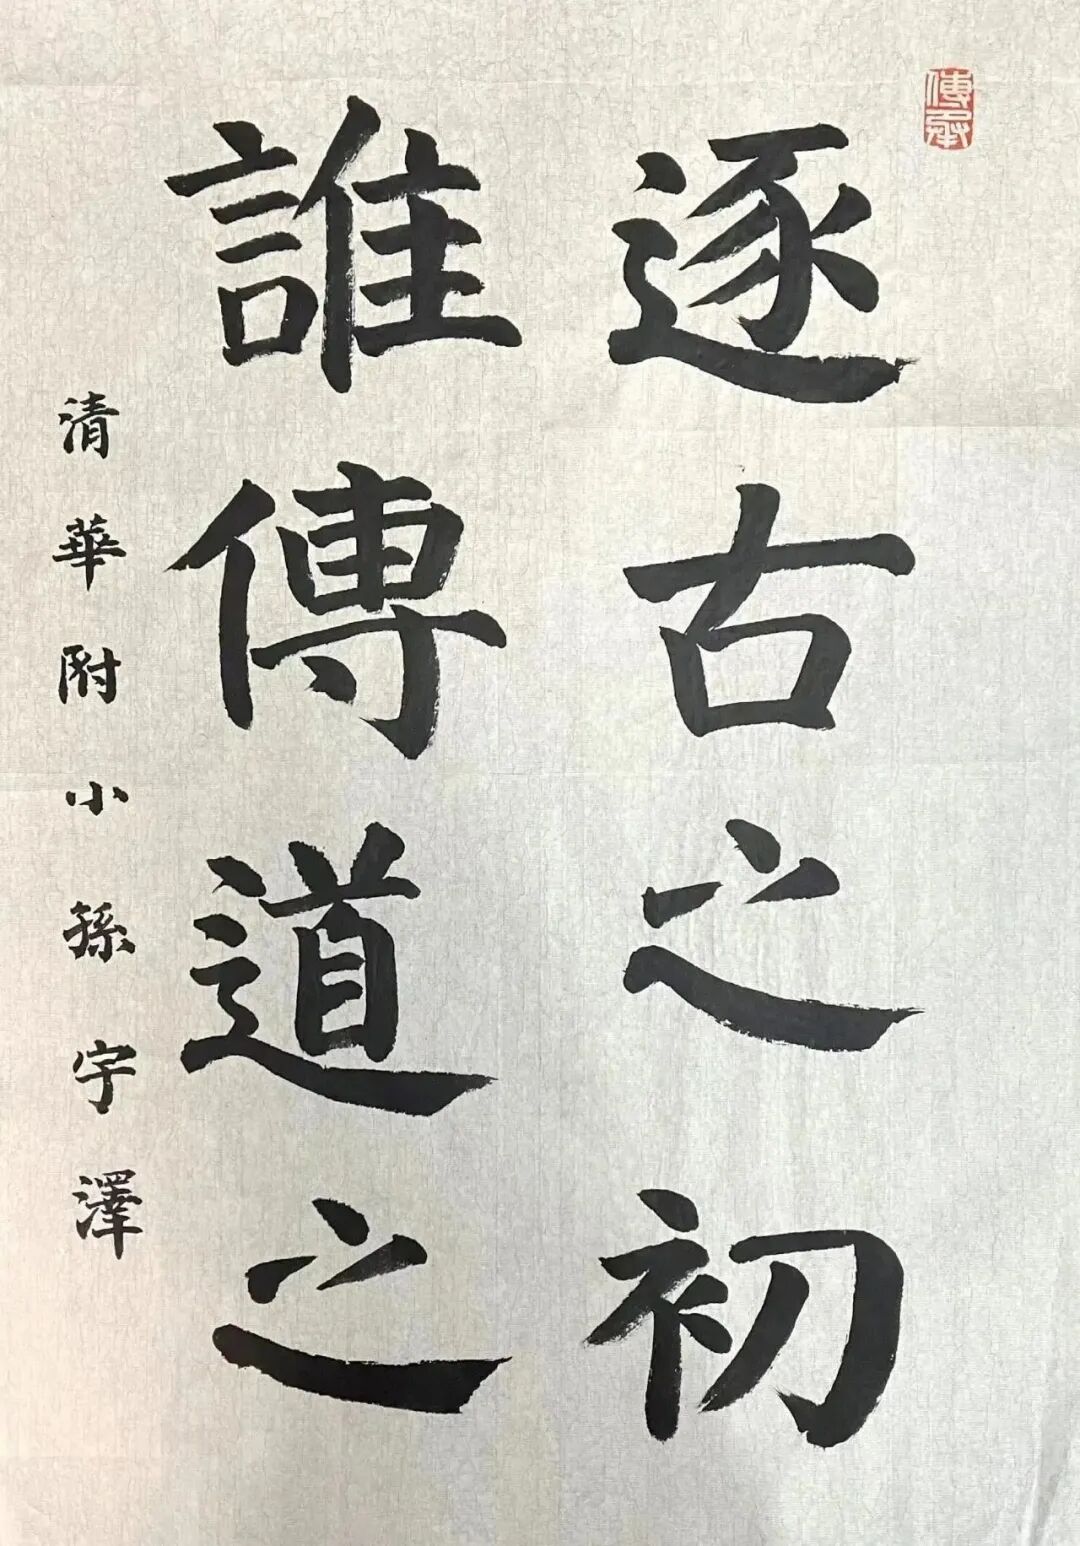 逐古之初
誰傳道之
清華附小孫宇澤
傳承